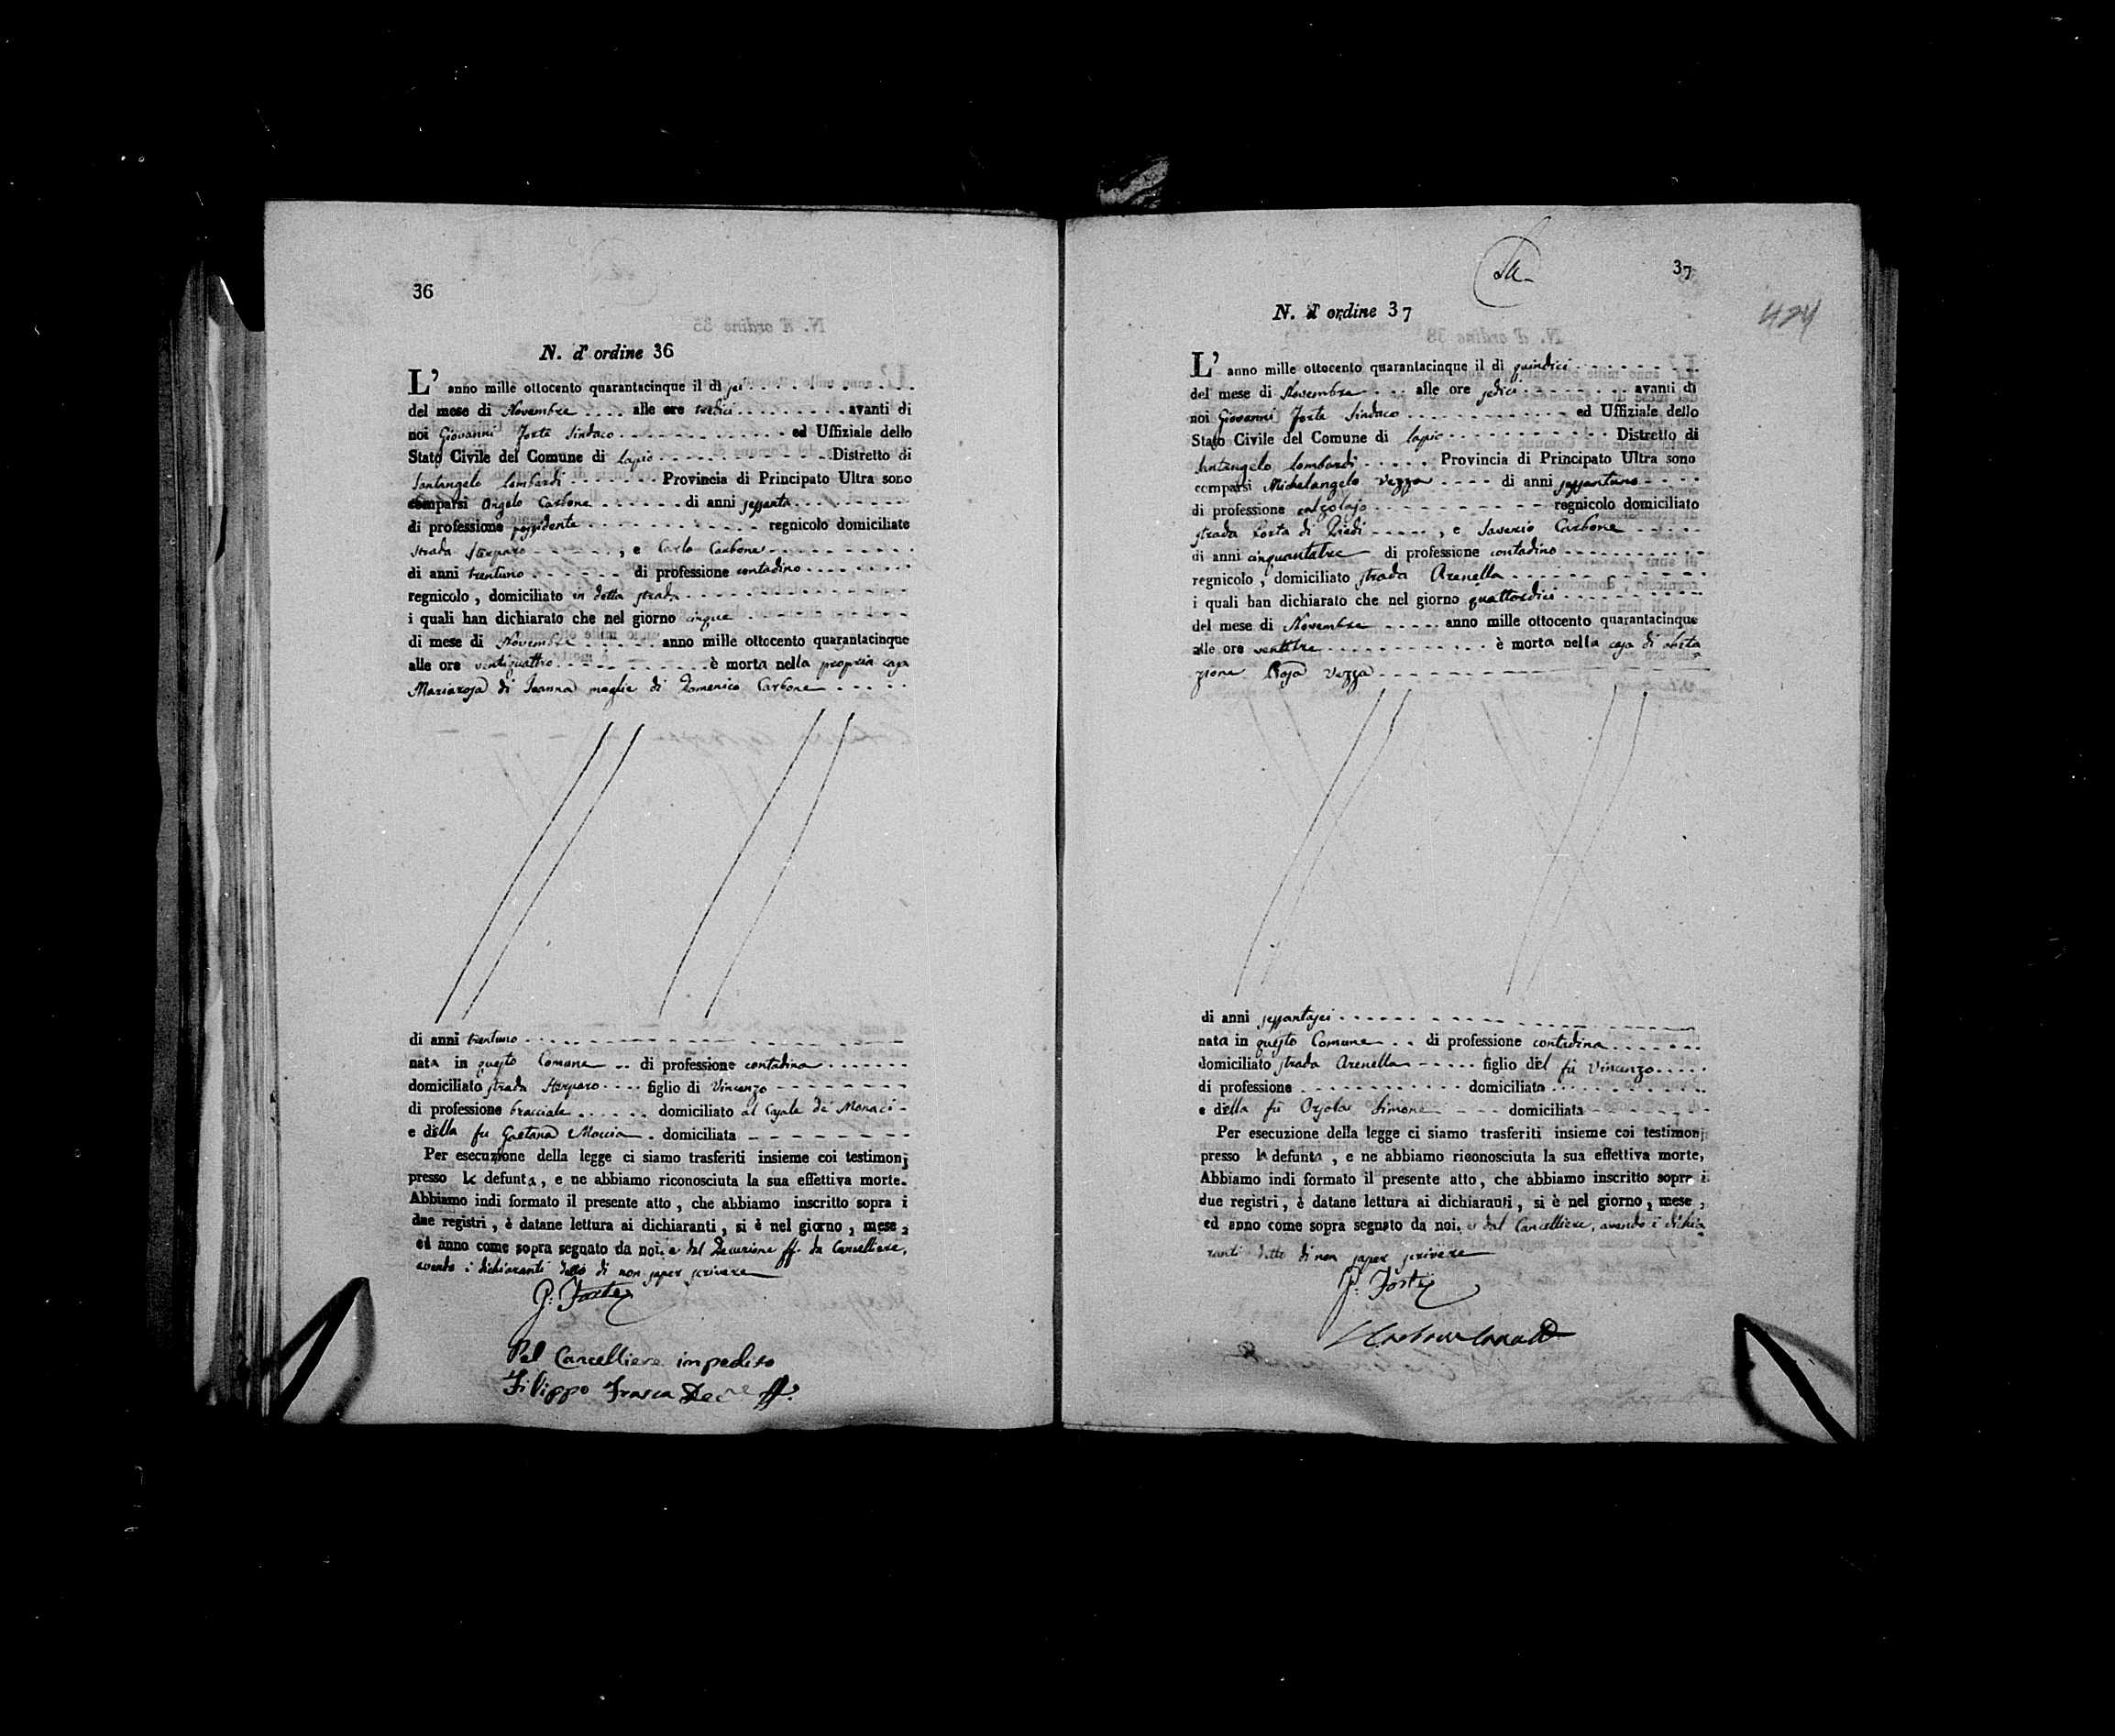 36
N. d' ordine 36
L' anno mille ottocento quarantacinque il dì sei
del mese di Novembre alle ore tredici avanti di
noi Giovanni Forte Sindaco ed Uffiziale dello
Stato Civile del Comune di Lapio Distretto di
Santangelo Lombardi Provincia di Principato Ultra sono
comparsi Angelo Carbone di anni sessanta
di professione possidente regnicolo domiciliato
strada Sterparo , e Carlo Carbone
di anni trentuno di professione contadino
regnicolo , domiciliato in detta strada
i quali han dichiarato che nel giorno cinque
di mese di Novembre anno mille ottocento quarantacinque
alle ore ventiquattro è morta nella propria casa
Mariarosa di Ioanna moglie di Domenico Carbone
di anni trentuno
nata in questo Comune di professione contadina
domiciliato strada Sterparo figlio di Vincenzo
di professione bracciale domiciliato al Casale de' Monaci
e della fu Gaetana Moccia domiciliata
Per esecuzione della legge ci siamo trasferiti insieme coi testimonj
presso la defunta, e ne abbiamo riconosciuta la sua effettiva morte.
Abbiamo indi formato il presente atto , che abbiamo inscritto sopra i
due registri , è datane lettura ai dichiaranti , si è nel giorno , mese ,
ed anno come sopra segnato da noi. e dal Decurione ff. da Cancelliere,
avendo i dichiaranti detto di non saper scrivere
G: Forte
Pel Cancelliere impedito
Filippo Frasca Dec.ne ff.
37
424
N. d' ordine 37
L' anno mille ottocento quarantacinque il dì quindici
del mese di Novembre alle ore sedici avanti di
noi Giovanni Forte Sindaco ed Uffiziale dello
Stato Civile del Comune di Lapio Distretto di
Santangelo Lombardi Provincia di Principato Ultra sono
comparsi Michelangelo Vezza di anni sessantuno
di professione calzolajo regnicolo domiciliato
strada Porta di Piedi , e Saverio Carbone
di anni cinquantatre di professione contadino
regnicolo , domiciliato strada Arenella
i quali han dichiarato che nel giorno quattordici
del mese di Novembre anno mille ottocento quarantacinque
alle ore ventitre è morta nella casa di abita
zione Rosa Vezza
di anni sessantasei
nata in questo Comune di professione contadina
domiciliato strada Arenella figlio del fù Vincenzo
di professione domiciliato
e della fù Orsola Simone domiciliata
Per esecuzione della legge ci siamo trasferiti insieme coi testimonj
presso la defunta , e ne abbiamo riconosciuta la sua effettiva morte,
Abbiamo indi formato il presente atto, che abbiamo inscritto sopra i
due registri , è datane lettura ai dichiaranti , si è nel giorno , mese ,
ed anno come sopra segnato da noi. e dal Cancelliere, avendo i dichia
ranti detto di non saper scrivere
G: Forte